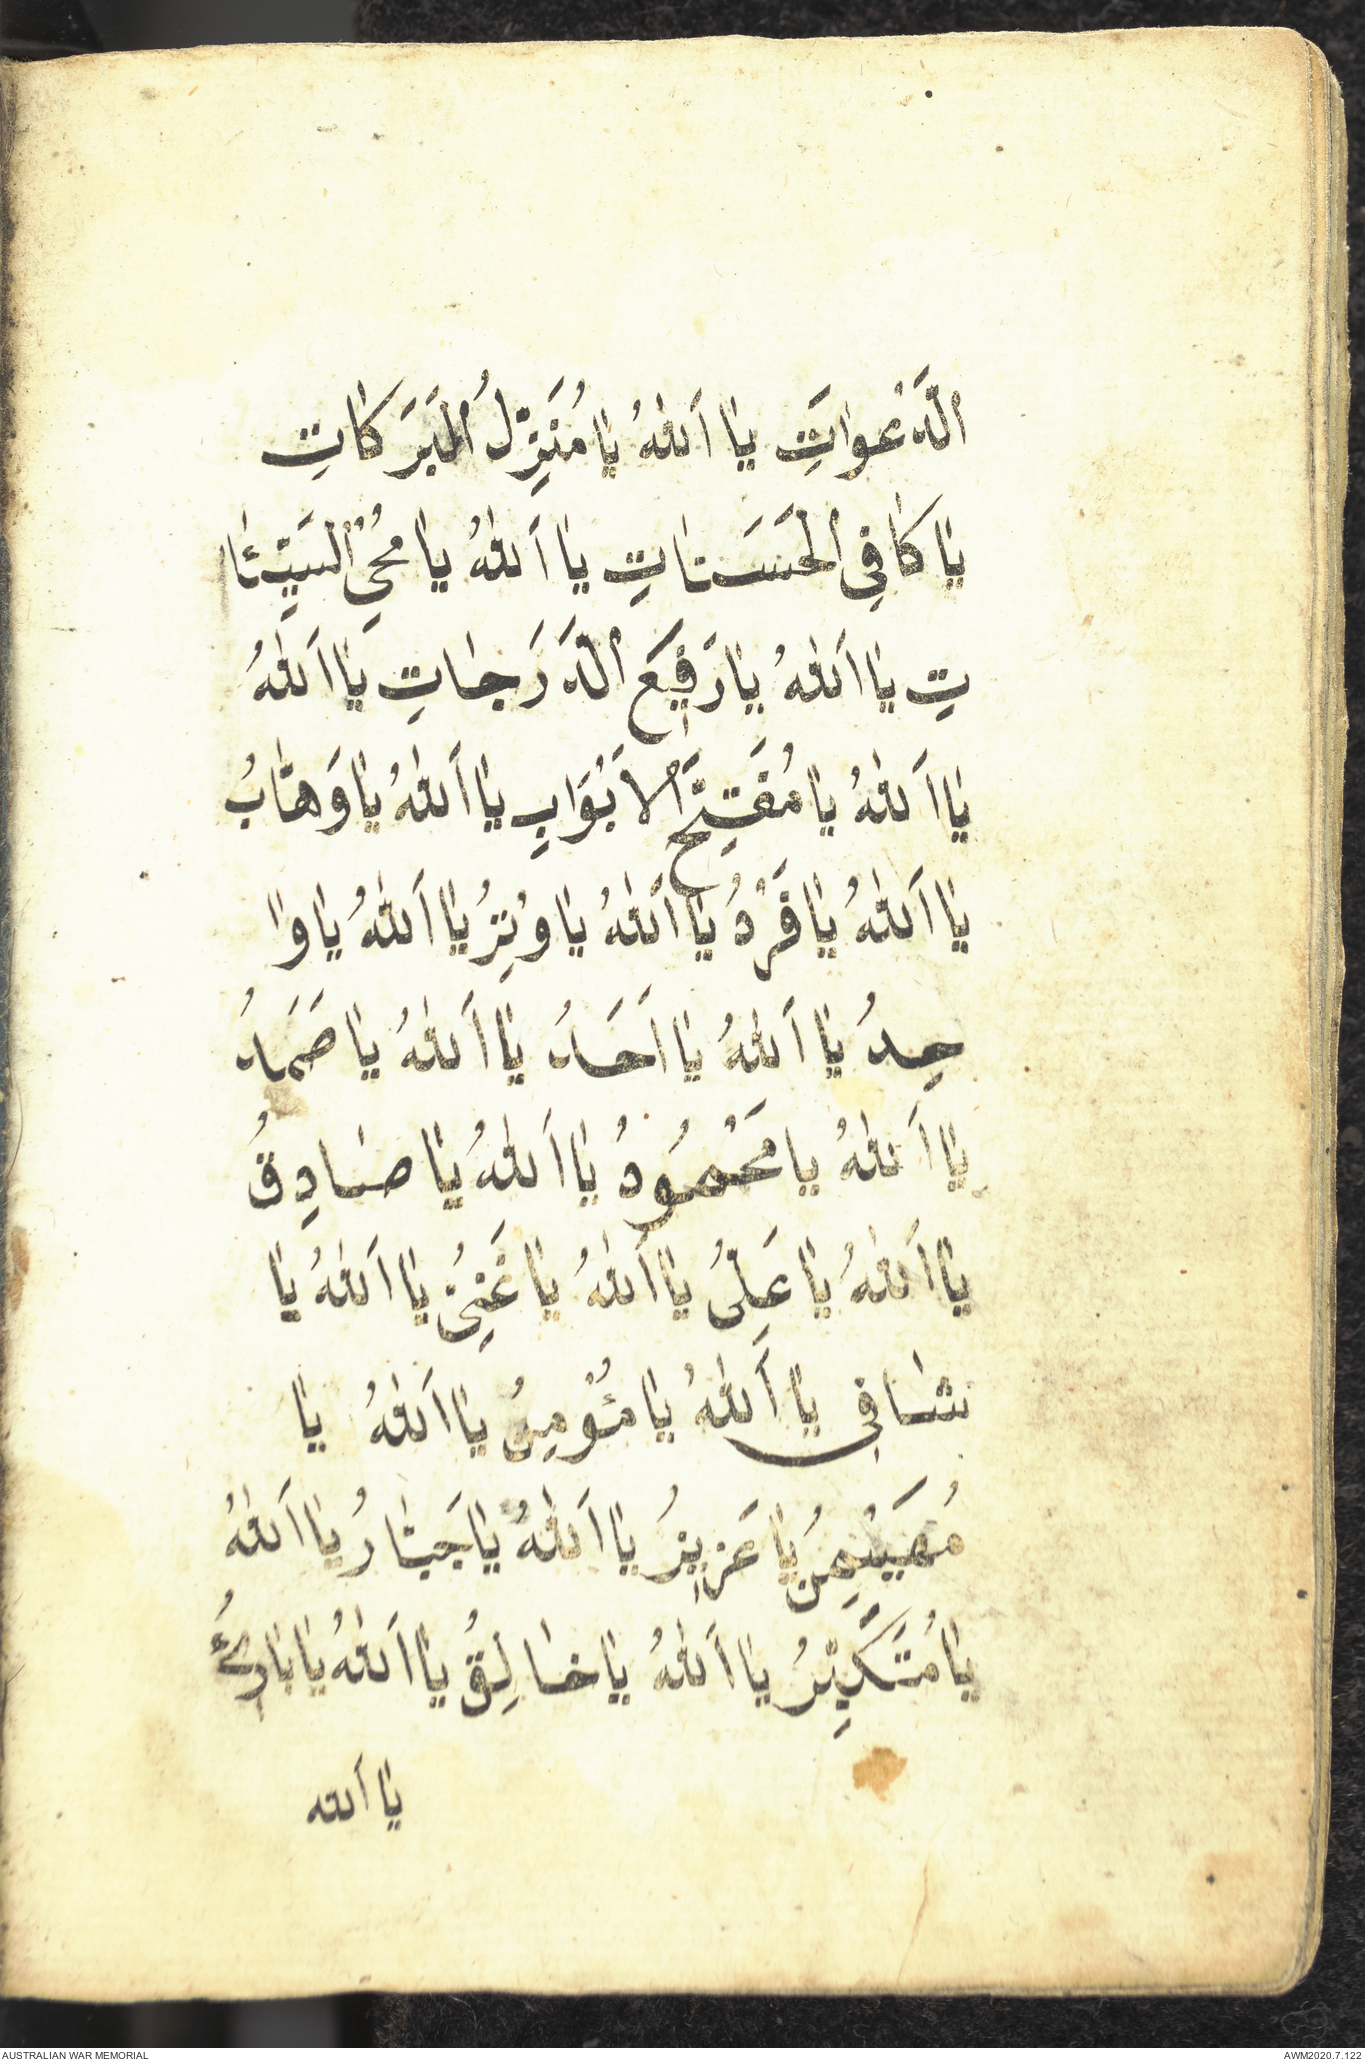 الدَّعْوَاتِ يَا اَللهُ يَا مُنَزِّلُ الْبَرَكَاتِ
يَا كَافِى الْحَسَنَاتِ يَا اَللهُ يَا مُحْىِ السَّيِّئَا
تِ يَا اَللهُ يَا رَفِيعَ الدَّرَجَاتِ يَا اَللهُ
يَا اَللهُ يَا مُفَتِّحَ الْاَبْوَابِ يَا اَللهُ يَا وَهَّابُ
يَا اَللهُ يَا فَرْدُ يَا اَللهُ يَا وِتْرُ يَا اَللهُ يَا وَا
حِدُ يَا اَللهُ يَا اَحَدُ يَا اَللهُ يَا صَمَدُ
يَا اَللهُ يَا مَحْمُودُ يَا اَللهُ يَا صَادِقُ
يَا اَللهُ يَا عَلِىُّ يَا اَللهُ يَا غَنِىُّ يَا اَللهُ يَا
شَافِى يَا اَللهُ يَا مُئْوْمِنُ يَا اَللهُ يَا
مُهَيْمِنُ يَا عَزِيزُ يَا اَللهُ يَا جَبَّارُ يَا اَللهُ
يَا مُتَكَبِّرُ يَا اَللهُ يَا خَالِقُ يَا اَللهُ يَا بَارِئُ
يَا اَلله
AUSTRALIAN WAR MEMORIAL
AWM2020.7.122